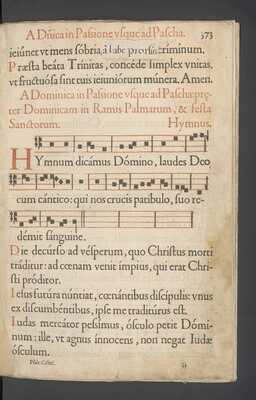 A Dñica in Passione vsque ad Pascha. 373
ieiúnet vt mens sóbria, á labe prorsus críminum.
Præsta beáta Trinitas, concéde simplex vnitas,
vt fructuósa sint tuis ieiuniórum múnera. Amen.
A Dominica in Passione vsque ad Pascha præ-
ter Dominicam in Ramis Palmarum, & festa
Sanctorum. Hymnus.
HYmnum dicámus Dómino, laudes Deo
cum cántico: qui nos crucis patíbulo, suo re-
démit sánguine.
Die decúrso ad vésperum, quo Christus morti
tráditur: ad cœnam venit ímpius, qui erat Chri-
sti próditor.
Iesus futúra núntiat, cœnántibus discípulis: vnus
ex discumbéntibus, ipse me traditúrus est.
Iudas mercátor péssimus, ósculo petit Dómi-
num: ille, vt agnus ínnocens, non negat Iudæ
ósculum.